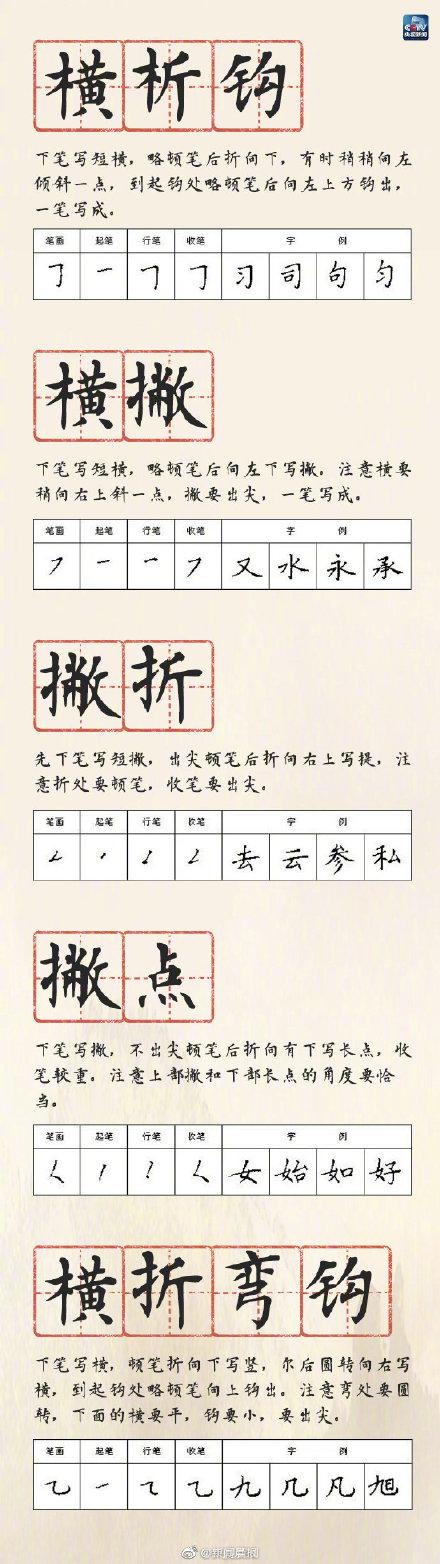 CCTV
央视新闻
横析钩
下笔写短横，略顿笔后折向下，有时稍稍向左
倾斜一点，到起钩处略顿笔后向左上方钩出，
一笔写成。
笔画 起笔 行笔 收笔 字 例
㇆ 一 ㇆ ㇆ 习 司 句 匀
横撇
下笔写短横，略顿笔后向左下写撇，注意横要
稍向右上斜一点，撇要出尖，一笔写成。
笔画 起笔 行笔 收笔 字 例
㇇ 一 一 ㇇ 又 水 永 承
撇折
先下笔写短撇，出尖顿笔后折向右上写提，注
意折处要顿笔，收笔要出尖。
笔画 起笔 行笔 收笔 字 例
去 云 参 私
撇点
下笔写撇，不出尖顿笔后折向有下写长点，收
笔较重。注意上部撇和下部长点的角度要恰
当。
笔画 起笔 行笔 收笔 字 例
女 始 如 好
横折弯钩
下笔写横，顿笔折向下写竖，尔后圆转向右写
横，到起钩处略顿笔向上钩出。注意弯处要圆
转，下面的横要平，钩要小，要出尖。
笔画 起笔 行笔 收笔 字 例
㇈ 一 ㇈ ㇈ 九 几 凡 旭
@新闻晨报